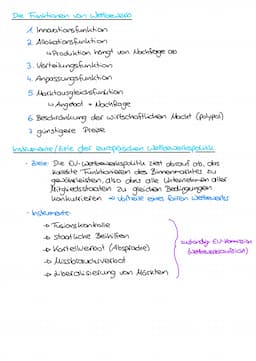 Die Funktionen von Wettbewerb
1. Innovationsfunktion
2. Allokationsfunktion
↳ Produktion hängt von Nachfrage ab
3. Verteilungsfunktion
4. Anpassungsfunktion
5. Marktausgleichsfunktion
↳ Angebot + Nachfrage
6. Beschränkung der wirtschaftlichen Macht (Polypol)
7. günstigere Preise
Instrumente/Ziele der europäischen Wettbewerbspolitik
- Ziele: Die EU-Wettbewerbspolitik zielt darauf ab, das
korrekte Funktionieren des Binnenmarktes zu
gewährleisten, also dass alle Unternehmen aller
Mitgliedsstaaten zu gleichen Bedingungen
konkurrieren → Vorteile eines fairen Wettbewerbs
- Instrumente:
→ Fusionskontrolle
→ Staatliche Beihilfen
→ Kartellverbot (Absprache)
→ Missbrauchverbot
→ Liberalisierung von Märkten
zuständig: EU-Kommission
(Wettbewerbskommission)